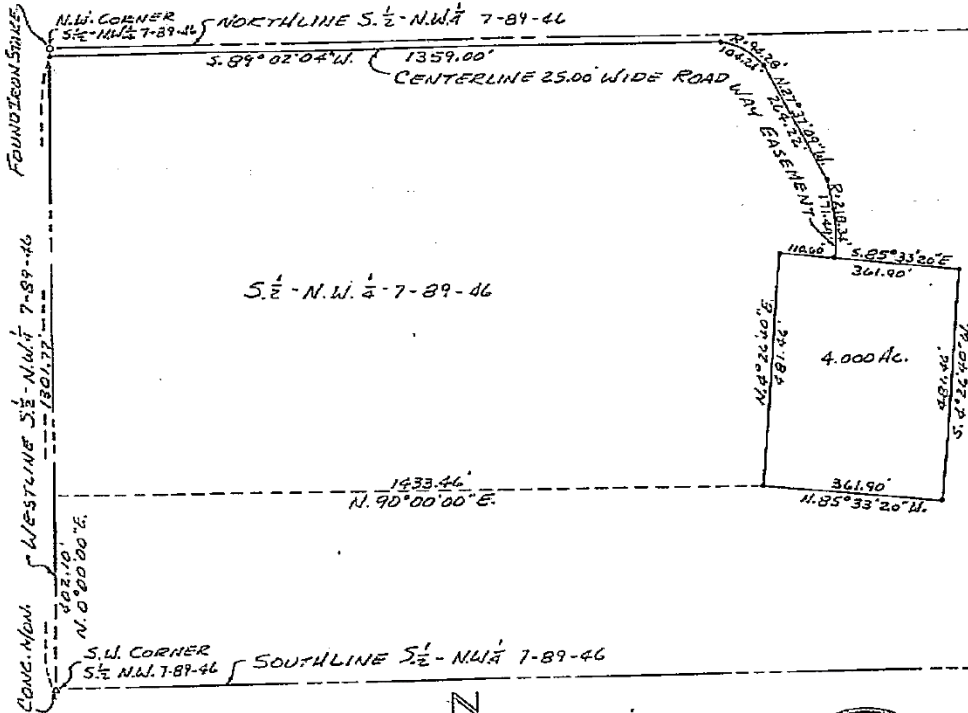 N.W. CORNER
S.½-N.W.¼ 7-89-46
NORTHLINE S.½-N.W.¼ 7-89-46
FOUND IRON STAKE
S.89°02'04"W. 1359.00'
CENTERLINE 25.00' WIDE ROAD WAY EASEMENT
R.=94.28'
104.26'
N.27°37'09"W.
264.22'
R.=218.34'
171.44'
110.60'
S.85°33'20"E
361.90'
S.½-N.W.¼-7-89-46
N.4°26'40"E.
481.46'
4.000 AC.
481.46'
S.4°26'40"W.
WESTLINE S.½-N.W.¼ 7-89-46
1301.77'
1433.46'
N.90°00'00"E.
361.90'
N.85°33'20"W.
402.10'
N.0°00'00"E.
CONC. MON.
S.W. CORNER
S.½ N.W. 7-89-46
SOUTHLINE S.½-N.W.¼ 7-89-46
N